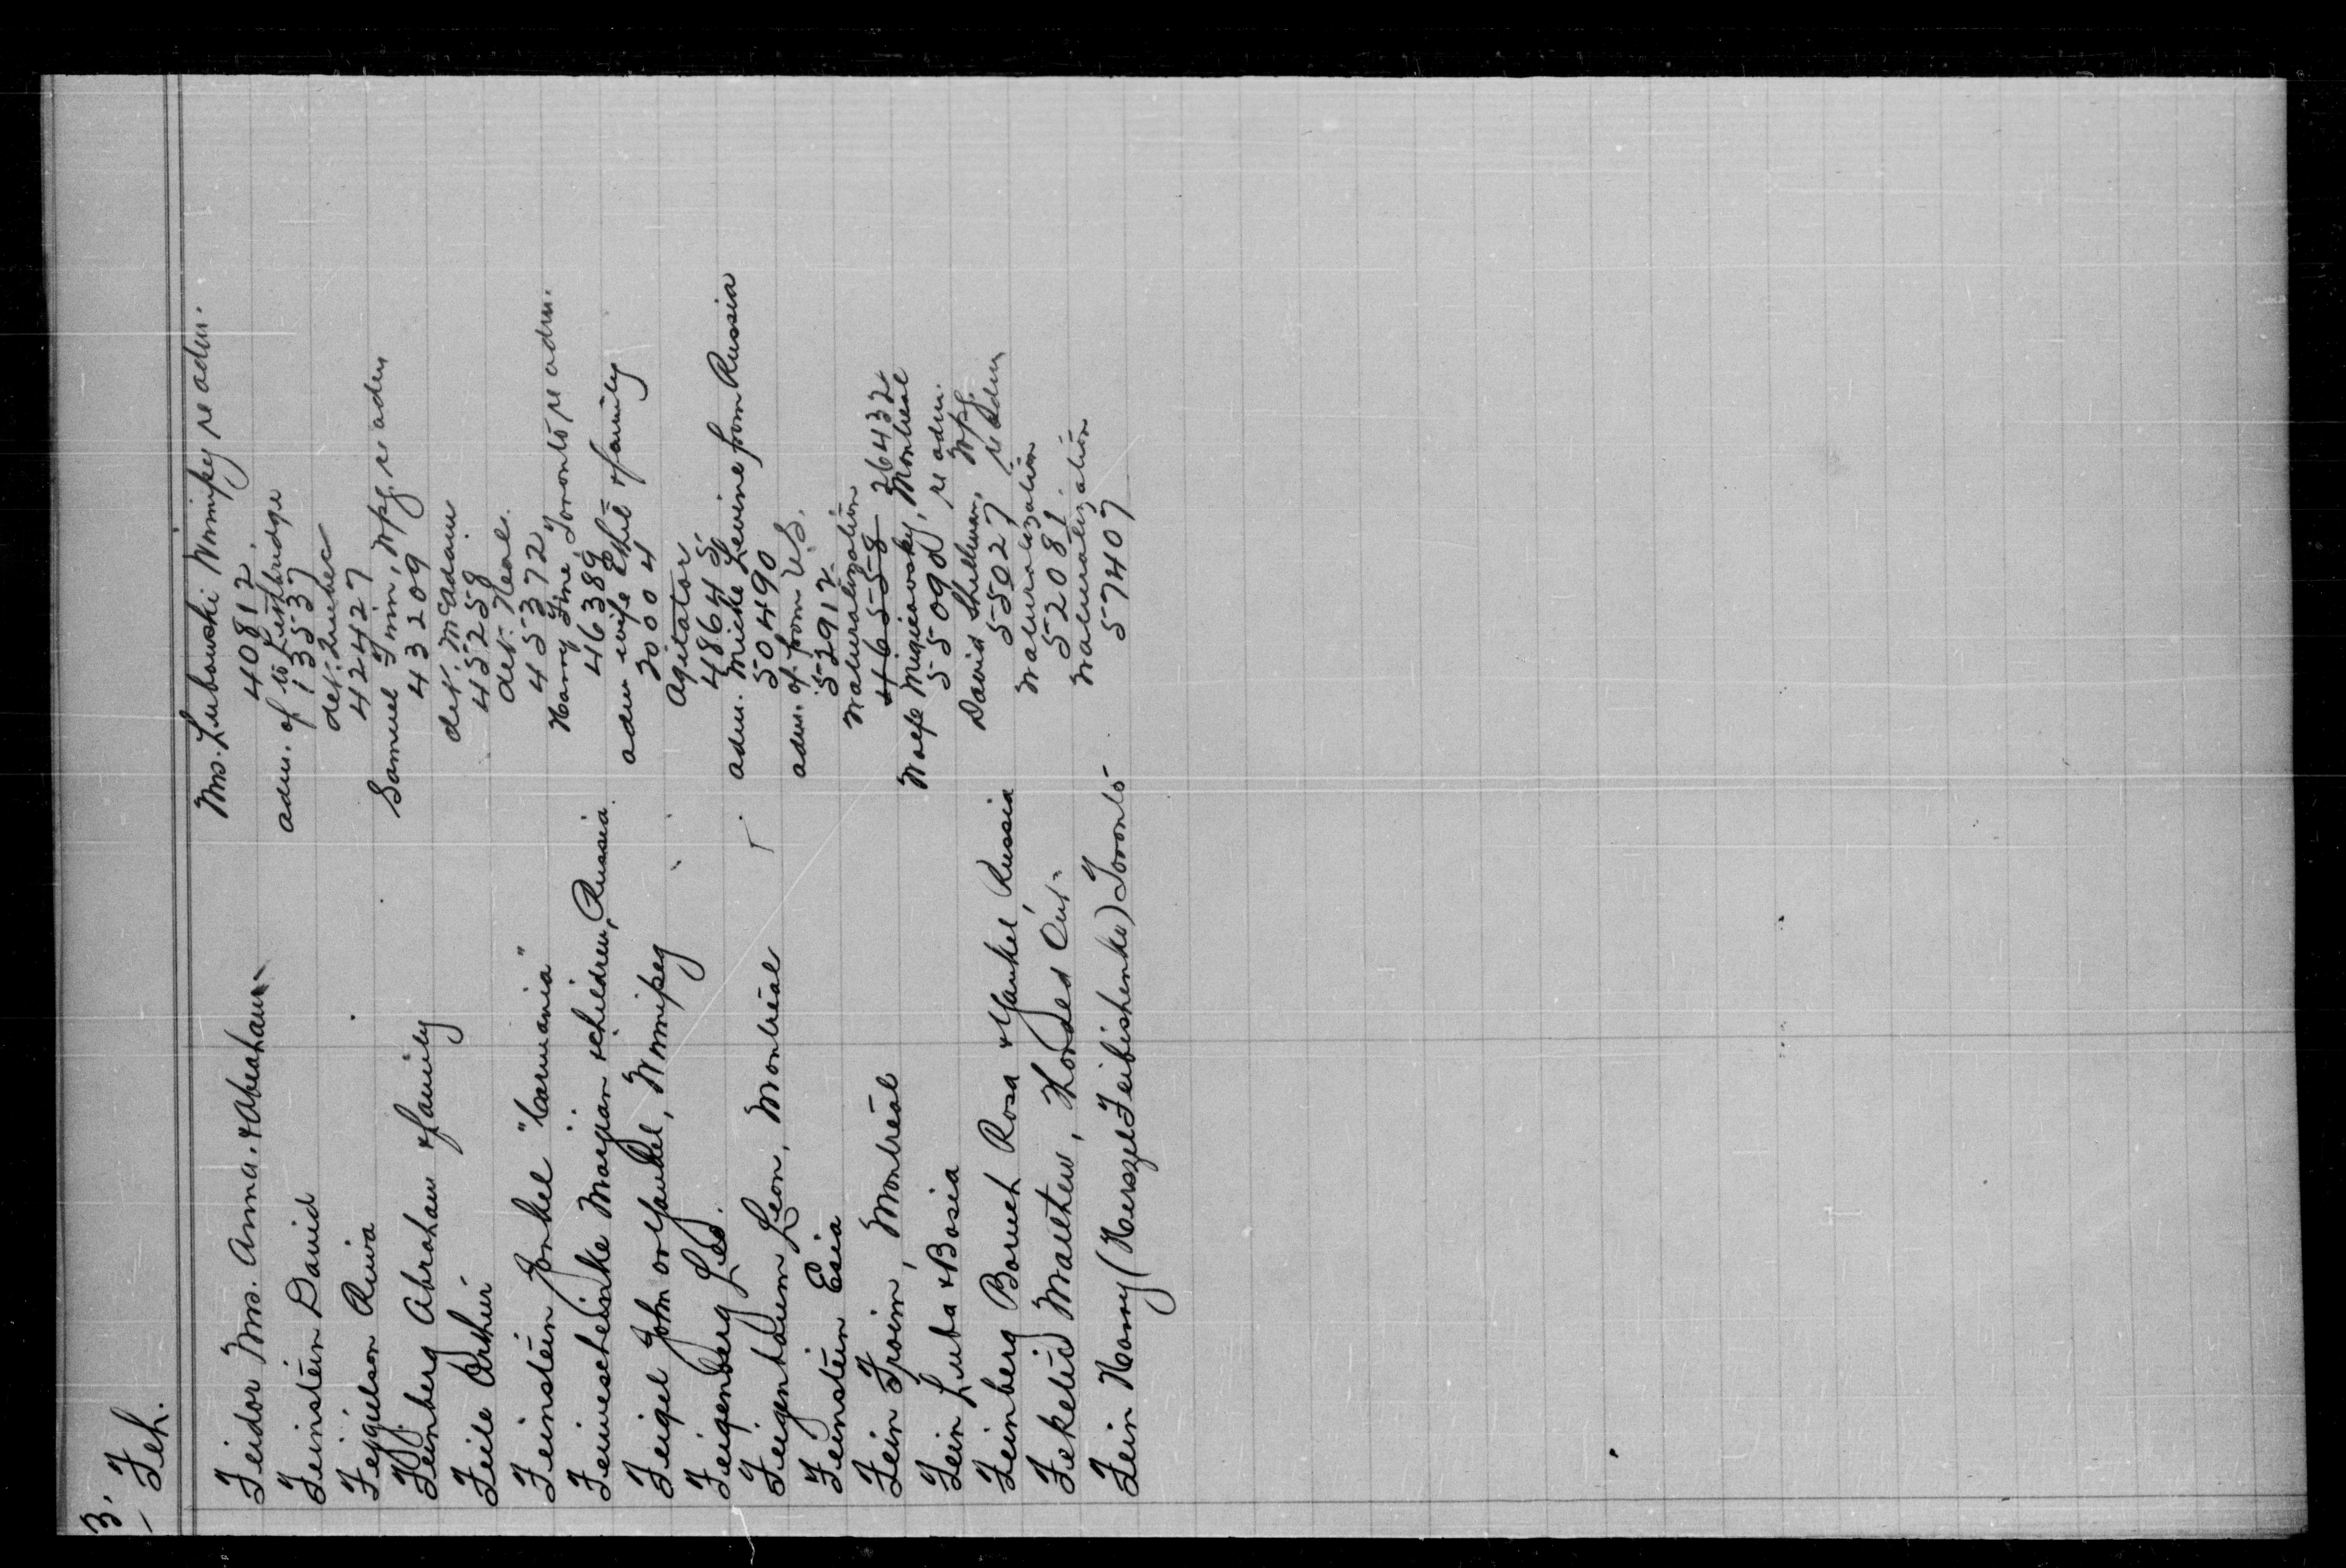 3.
Feh.
Feidor Mrs. Anna. & Abraham
Mrs. Lubowski Winnipeg re adm.
40812
Feinstein David
adm. of to Lethbridge
13537
Fejgielson Riwa
det. Quebec
42427
Feinberg Abraham & family
Samuel Finn, Wpg. re adm
43209
Feile Arthur
det. McAdam
45258
Feinstein Jonkel "Carmania"
det. Neal.
45372
Feiweschteinke Marjian & children, Russia
Harry Fine, Toronto re adm.
46389
Feigel John or Yankel, Winnipeg
adm wife Ethel & family
20004
Feigenberg Leo.
Agitator
48645
Feigenbaum Leon, Montreal
adm. Miche Levine from Russia
50490
Feinstein Esia
adm. of from U.S.
52912
Fein Froim, Montreal
Naturalization
46558 26432
Fein Luba & Bosia
Wolfe Montreal
55090, re adm.
Feinberg Boruch Rosa & Yankel, Russia
David Shellman, Wpg.
55027 re adm
Feketid Walter, Ont.
Naturalization
52081
Fein Harry (Herszel Feibishenko) Toronto
Naturalization
57407